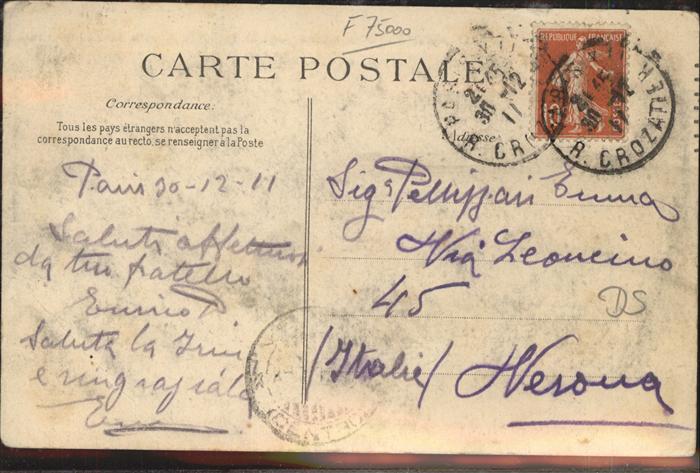 F 75000
CARTE POSTALE
RÉPUBLIQUE FRANÇAISE
Correspondance:
Tous les pays étrangers n'acceptent pas la
correspondance au recto, se renseigner à la Poste
Adresse
R. CROZATIER
21 45
30 -12
11
Paris 30-12-11
Saluti affettuosi
da tuo fratello
Enrico P
Saluta la
e ringraziala
Sigª Pellissari Emma
Via Leoncino
45
(Italie) Verona
DS